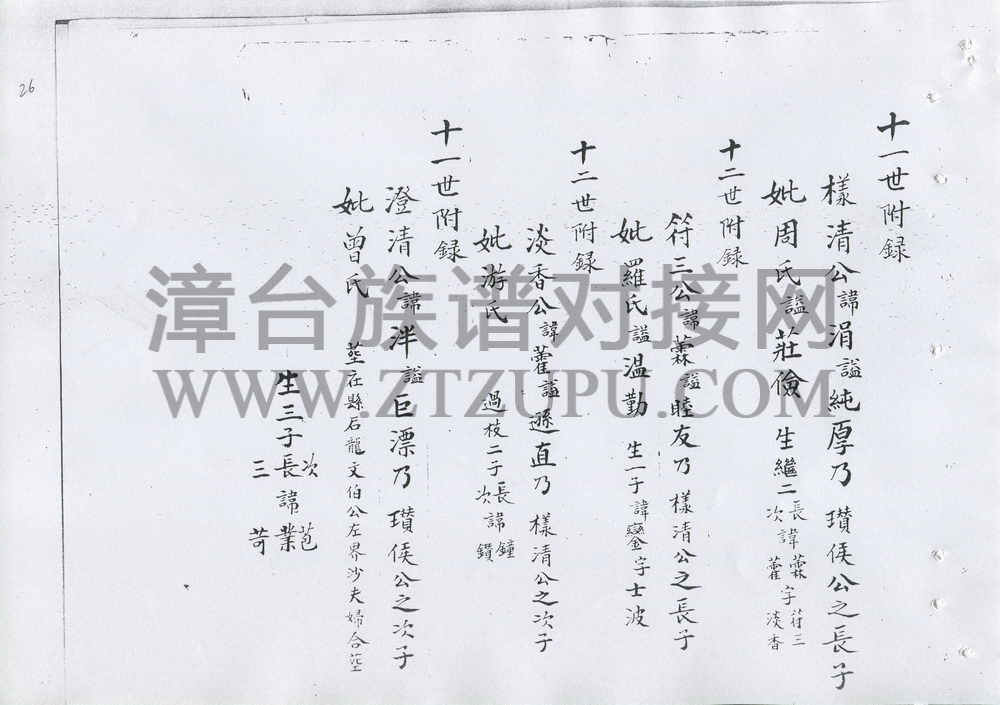 26
十一世附録
樣清公諱涓謚純厚乃 瓚侯公之長子
妣周氏謚莊儉 生繼二長諱蘇字符三
次 藿 淡香
十二世附録
符三公諱 謚睦友乃 樣清公之長子
妣羅氏謚温勤 生一子諱鑾字士波
十二世附録
淡香公諱藿謚遜直乃 樣清公之次子
妣游氏 過枝二子長諱鐘
次 鑽
十一世附録
澄清公諱泮謚巨漂乃 瓚侯公之次子
妣曾氏 塟在縣石龍文伯公左界沙夫婦合塟
次 苞
生三子長諱業
三 苛
漳台族谱对接网
WWW.ZTZUPU.COM